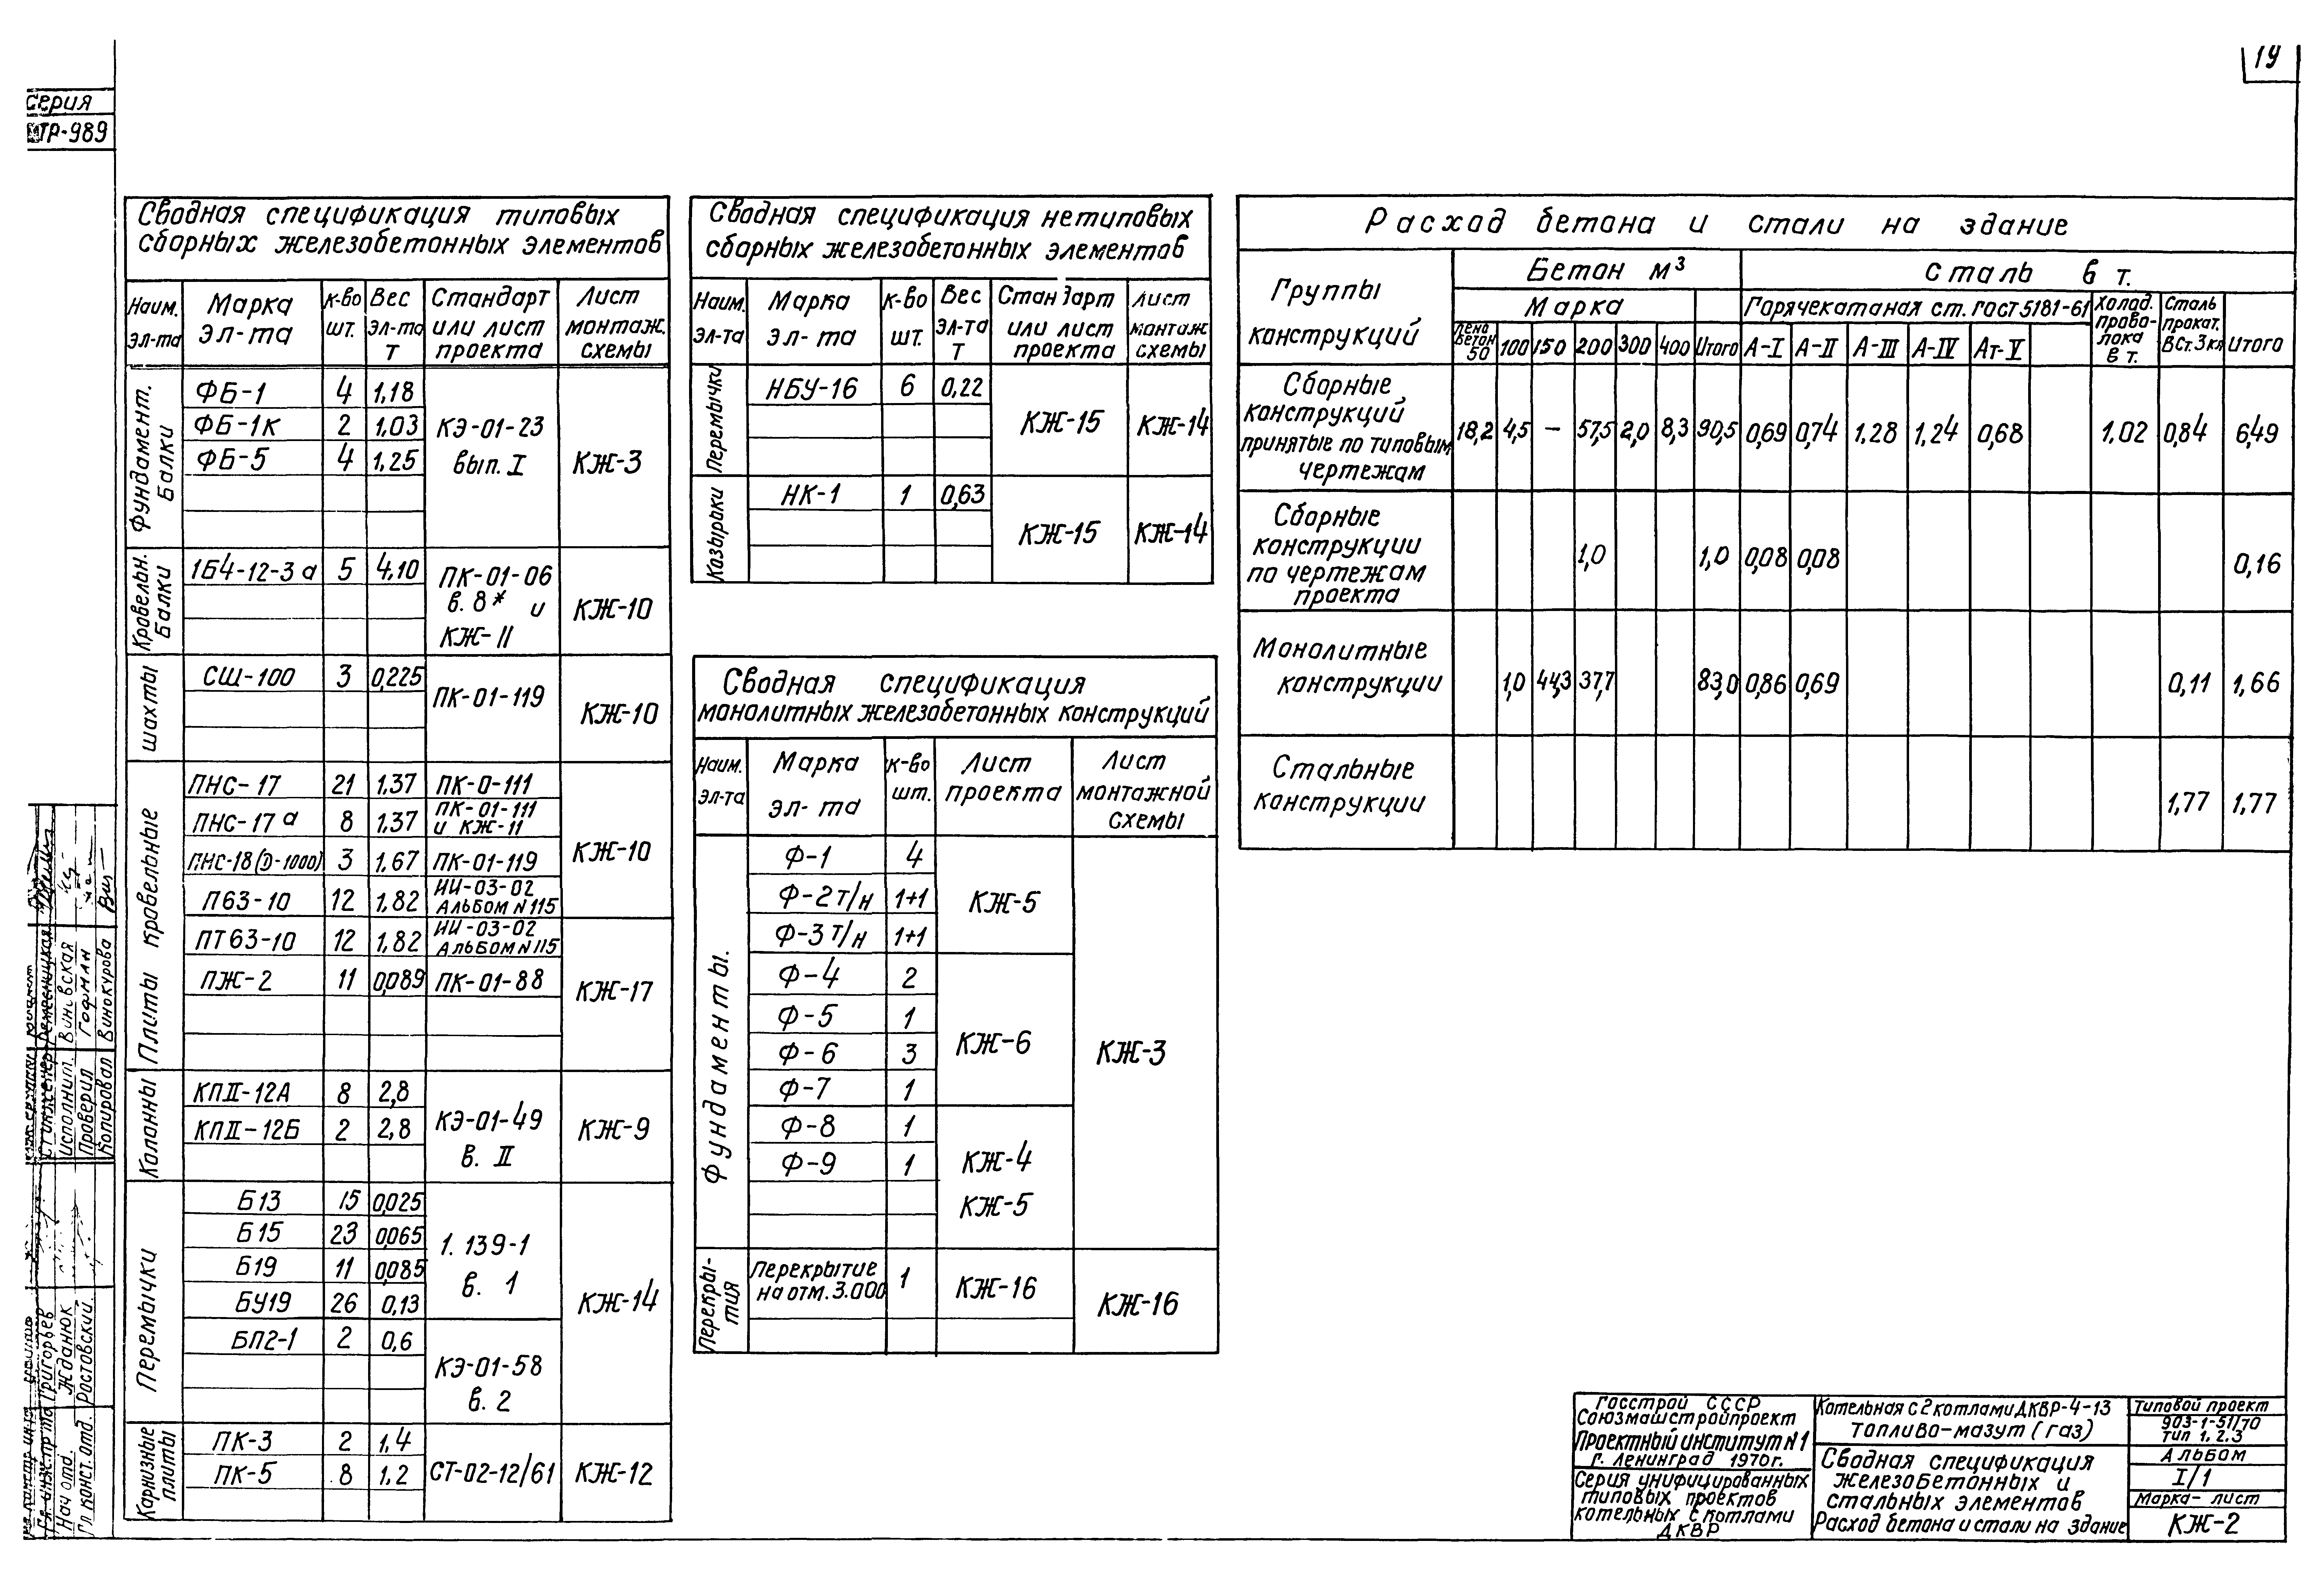 19
Серия
ТР-989
Сводная спецификация типовых
сборных железобетонных элементов
Наим. эл-та | Марка эл-та | к-во шт. | Вес эл-та т | Стандарт или лист проекта | Лист монтаж. схемы
Фундамент. балки
ФБ-1 4 1,18
ФБ-1к 2 1,03
ФБ-5 4 1,25
КЭ-01-23
вып. I
КЖ-3
Кровельн. балки
1Б4-12-3а 5 4,10
ПК-01-06
в. 8* и
КЖ-11
КЖ-10
шахты
СШ-100 3 0,225
ПК-01-119
КЖ-10
Плиты кровельные
ПНС-17 21 1.37 ПК-0-111
ПНС-17а 8 1.37 ПК-01-111 и КЖ-11
ПНС-18(D-1000) 3 1.67 ПК-01-119
П63-10 12 1,82 ИИ-03-02 Альбом N115
КЖ-10
ПТ63-10 12 1,82 ИИ-03-02 Альбом N115
ПЖ-2 11 0,089 ПК-01-88
КЖ-17
Колонны
КПII-12А 8 2,8
КПII-12Б 2 2,8
КЭ-01-49
в. II
КЖ-9
Перемычки
Б13 15 0,025
Б15 23 0,065
Б19 11 0,085
БУ19 26 0,13
1. 139-1
в. 1
БП2-1 2 0,6
КЭ-01-58
в. 2
КЖ-14
Карнизные плиты
ПК-3 2 1,4
ПК-5 8 1.2
СТ-02-12/61
КЖ-12
Сводная спецификация нетиповых
сборных железобетонных элементов
Наим. эл-та | Марка эл-та | к-во шт. | Вес эл-та т | Стандарт или лист проекта | Лист монтаж схемы
Перемычки
НБУ-16 6 0,22
КЖ-15 КЖ-14
Козырьки
НК-1 1 0,63
КЖ-15 КЖ-14
Сводная спецификация
монолитных железобетонных конструкций
Наим. эл-та | Марка эл-та | к-во шт. | Лист проекта | Лист монтажной схемы
Фундаменты.
Ф-1 4
Ф-2т/н 1+1
Ф-3т/н 1+1
КЖ-5
Ф-4 2
Ф-5 1
Ф-6 3
Ф-7 1
КЖ-6
Ф-8 1
Ф-9 1
КЖ-4
КЖ-5
КЖ-3
Перекрытия
Перекрытие
на отм. 3.000
1 КЖ-16 КЖ-16
Расход бетона и стали на здание
Группы конструкций
Бетон м³
Сталь в т.
Марка
Горячекатаная ст. гост 5181-61
Пенобетон 50 | 100 | 150 | 200 | 300 | 400 | Итого | А-I | А-II | А-III | А-IV | Ат-V | Холод. проволока в т. | Сталь прокат. В Ст. 3кп | Итого
Сборные
конструкций
принятые по типовым
чертежам
18,2 4,5 — 57,5 2,0 8,3 90,5 0,69 0,74 1,28 1,24 0,68 1,02 0,84 6,49
Сборные
конструкции
по чертежам
проекта
1,0 1,0 0,08 0,08 0,16
Монолитные
конструкции
1,0 44,3 37,7 83,0 0,86 0,69 0,11 1,66
Стальные
конструкции
1,77 1,77
Госстрой СССР
Союзмашстройпроект
Проектный институт N1
г. Ленинград 1970г.
Серия унифицированных
типовых проектов
котельных с котлами
ДКВР
Котельная с 2 котлами ДКВР-4-13
Топливо-мазут (газ)
Сводная спецификация
железобетонных и
стальных элементов
Расход бетона и стали на здание
Типовой проект
903-1-51/70
тип 1.2.3
Альбом
I/1
Марка-лист
КЖ-2
Ст инженер Ременицкая
Исполнит.
Проверил Гофман
Копировал Винокурова
Гл. инж. пр-та Григорьев
Нач отд. Жданюк
Гл конст. отд. Ростовский